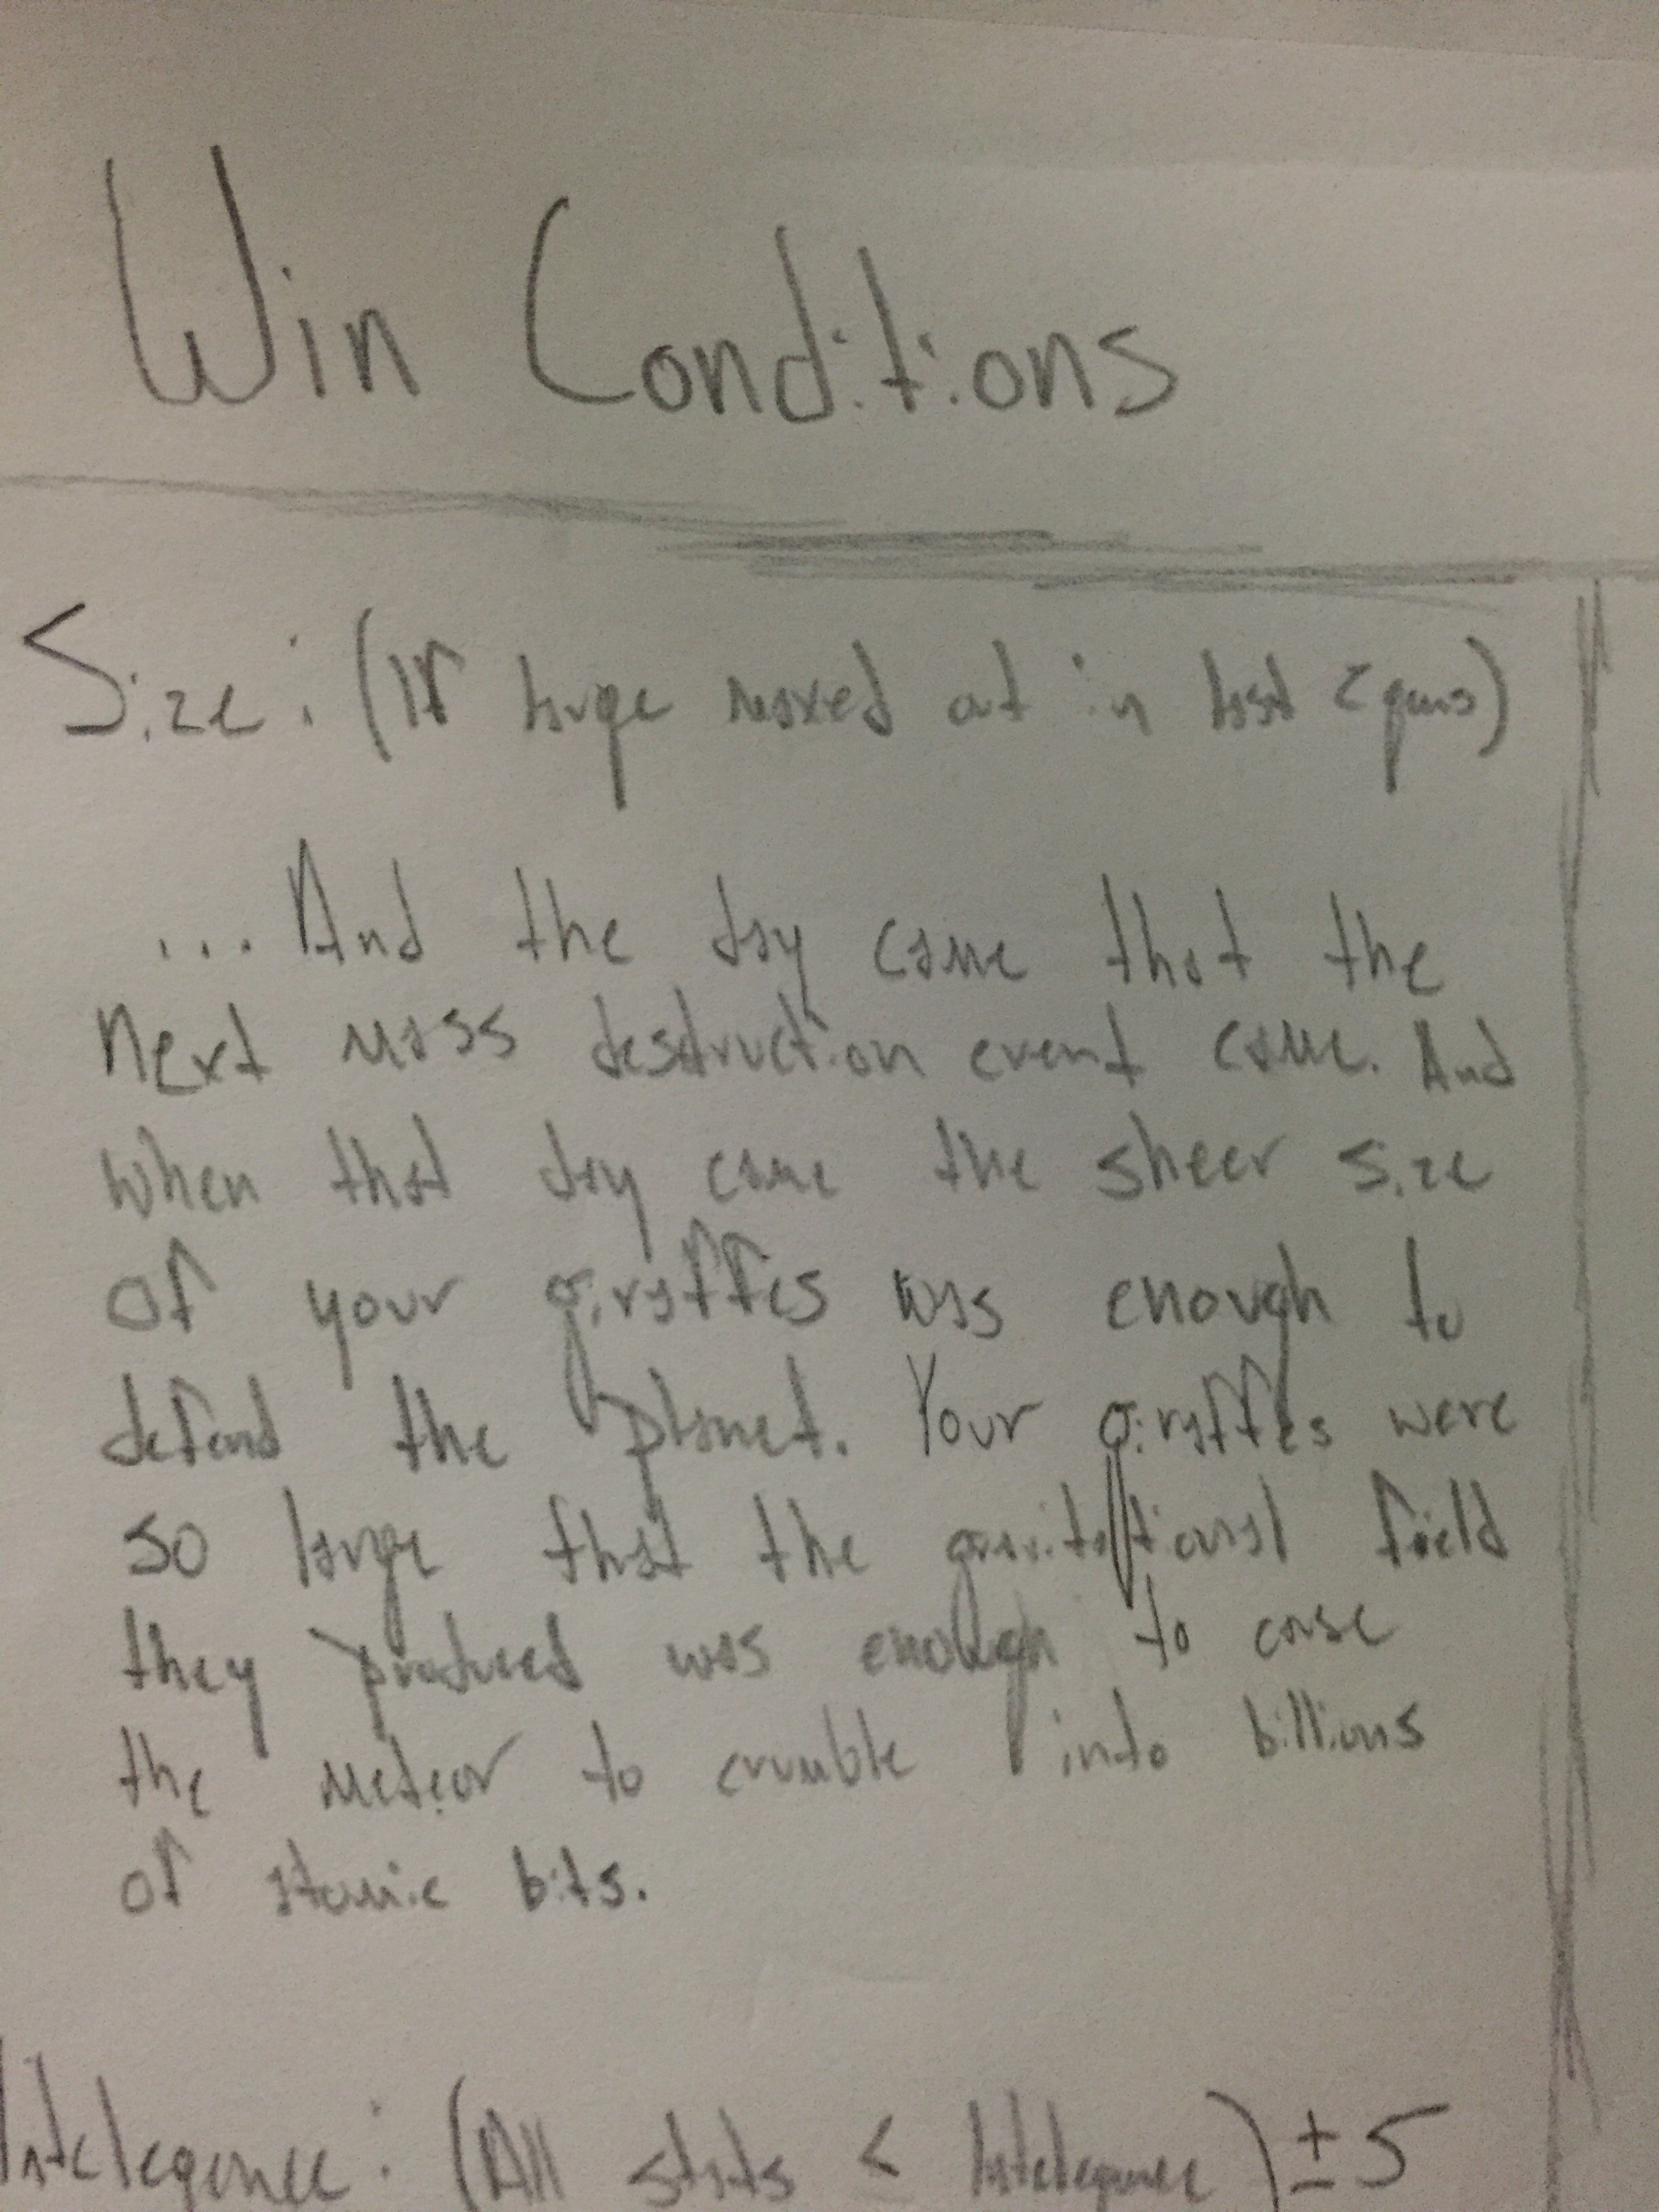 Win Conditions
Size: (If huge maxed out in last
... And the day came that the
next mass destruction event came. And
when that day came the sheer size
of your giraffes was enough to
defend the planet. Your giraffes were
so large that the gravitational field
they produced was enough to case
the meteor to crumble into billions
of atomic bits.
Intelegence: (All stats < Intelegence) ± 5